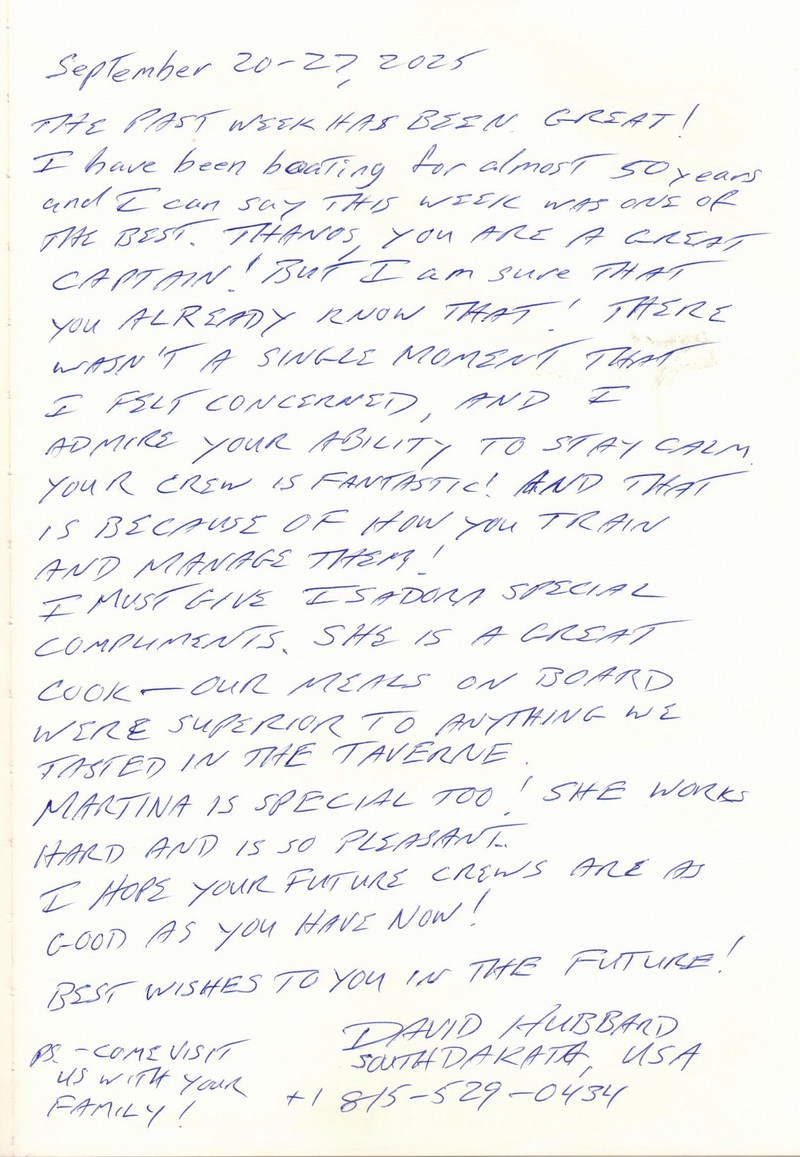 September 20-27, 2025
THE PAST WEEK HAS BEEN GREAT!
I have been boating for almost 50 years
and I can say THIS WEEK WAS ONE OF
THE BEST. THANOS, YOU ARE A GREAT
CAPTAIN! BUT I am sure THAT
YOU ALREADY KNOW THAT! THERE
WASN'T A SINGLE MOMENT THAT
I FELT CONCERNED, AND I
ADMIRE YOUR ABILITY TO STAY CALM.
YOUR CREW IS FANTASTIC! AND THAT
IS BECAUSE OF HOW YOU TRAIN
AND MANAGE THEM!
I MUST GIVE ISADORA SPECIAL
COMPLIMENTS. SHE IS A GREAT
COOK — OUR MEALS ON BOARD
WERE SUPERIOR TO ANYTHING WE
TASTED IN THE TAVERNE.
MARTINA IS SPECIAL TOO! SHE WORKS
HARD AND IS SO PLEASANT.
I HOPE YOUR FUTURE CREWS ARE AS
GOOD AS YOU HAVE NOW!
BEST WISHES TO YOU IN THE FUTURE!
DAVID HUBBARD
SOUTH DAKATA, USA
+1 815-529-0434
PS. - COME VISIT
US WITH YOUR
FAMILY!